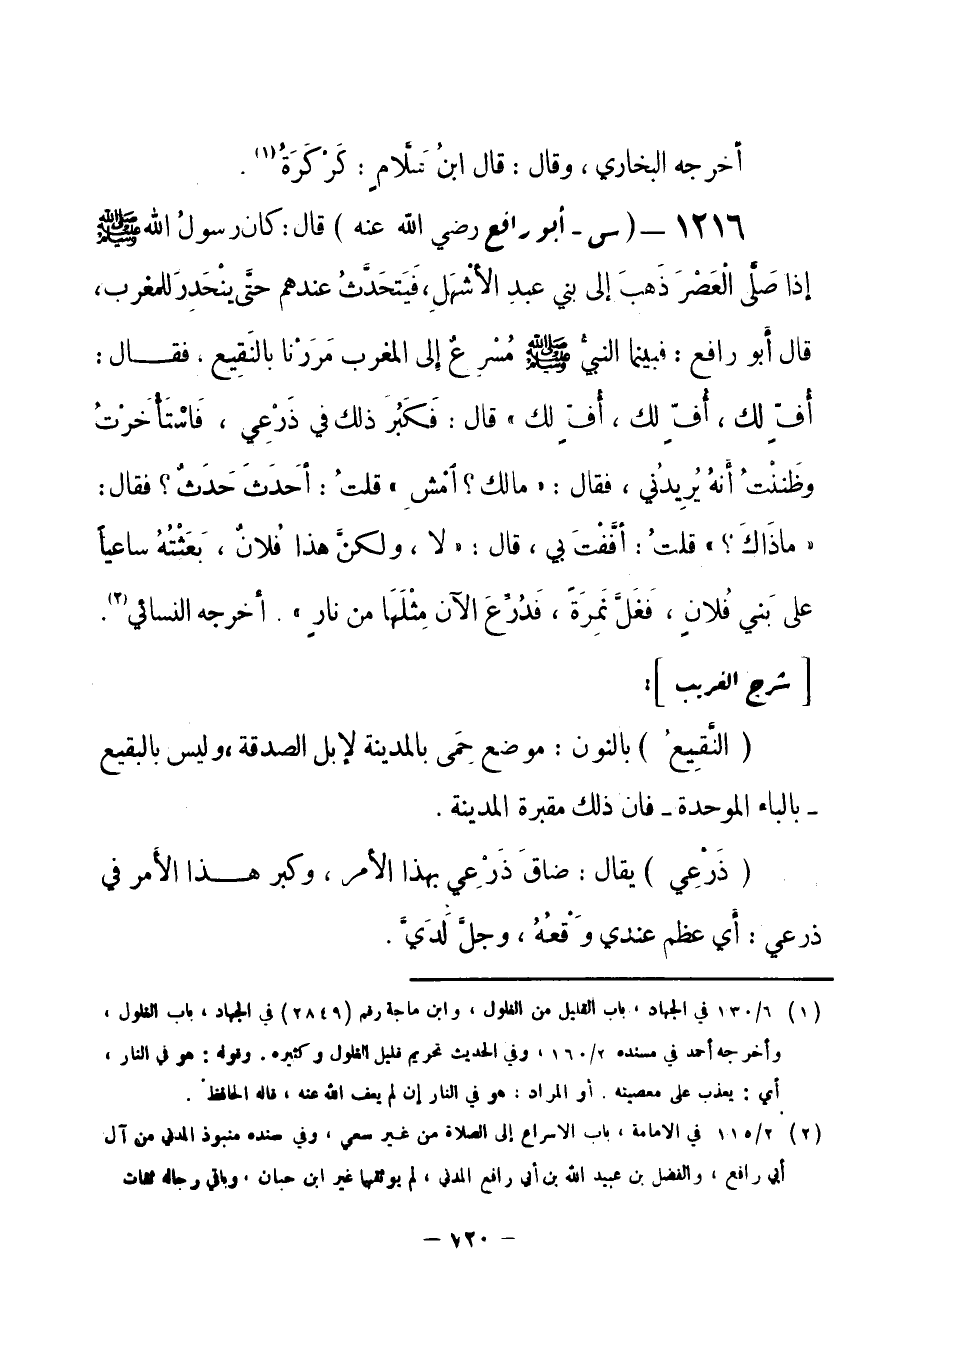 أخرجه البخاري ، وقال : قال ابنُ سَلَّامٍ : كَرْكَرَةُ(١) .
١٢١٦ – ( س - أبو رافع رضي الله عنه ) قال : كان رسولُ الله ﷺ
إذا صَلَّى الْعَصْرَ ذَهبَ إلى بني عبدِ الأَشْهَلِ، فَيَتحَدَّثُ عندهم حتَّى ينْحَدِرَ للمغرب،
قال أَبو رافع : فبينما النبيُّ ﷺ مُسْرِعٌ إلى المغرب مَرَرْنا بالنَقِيع . فقـــال :
أُفّ لك ، أُفّ لك ، أُفّ لك » قال : فَكَبُرَ ذلك في ذَرْعِي ، فَاسْتَأْخَرْتُ
وظَننْتُ أَنهُ يُرِيدُني ، فقال : « مالك ؟ أمْشِ » قلتُ : أَحَدَثَ حَدَثٌ ؟ فقال :
« ماذَاكَ ؟ » قلتُ : أَفَّفْتَ بي ، قال : « لا ، ولكنَّ هذا فُلانٌ ، بَعَثْتُهُ ساعياً
على بَني فُلانٍ ، فَغَلَّ نَمِرَةً ، فَدُرِّعَ الآن مِثْلَهَا من نارٍ » . أخرجه النسائي(٢).
[ شرح الغريب ] :
( النَّقِيعُ ) بالنون : موضع حِمَى بالمدينة لإبل الصدقة ، وليس بالبقيع
ـ بالباء الموحدة ـ فان ذلك مقبرة المدينة .
( ذَرْعِي ) يقال : ضاقَ ذَرْعِي بهذا الأمر ، وكبر هـــذا الأمر في
ذرعي : أَي عظم عندي وَقْعُهُ ، وجلَّ لَدَيَّ .
(١) ١٣٠/٦ في الجهاد ، باب القليل من الغلول ، وابن ماجة رقم (٢٨٤٩) في الجهاد ، باب الغلول ،
وأخرجه أحمد في مسنده ١٦٠/٢ ، وفي الحديث تحريم قليل الغلول وكثيره . وقوله : هو في النار ،
أي : يعذب على معصيته . أو المراد : هو في النار إن لم يعف الله عنه ، قاله الحافظ .
(٢) ١١٥/٢ في الامامة ، باب الاسراع إلى الصلاة من غير سعي ، وفي سنده منبوذ المدني من آل
أبي رافع ، والفضل بن عبيد الله بن أبي رافع المدني ، لم يوثقها غير ابن حبان ، وباقي رجاله ثقات
– ٧٢٠ –